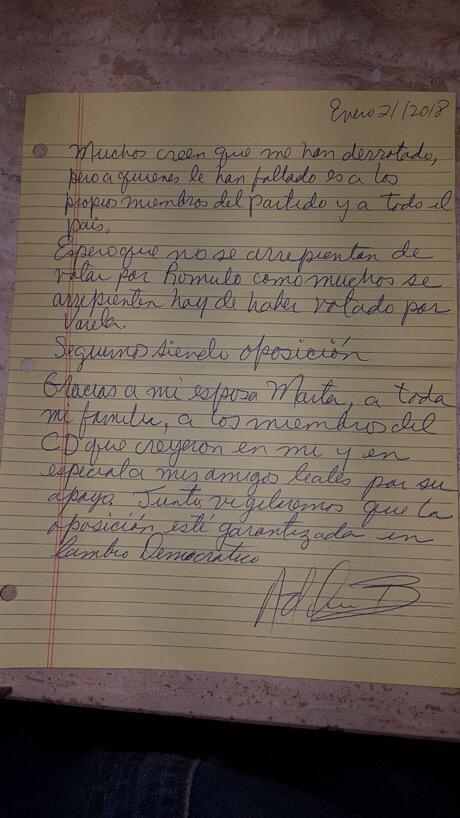 Enero 21/2018
Muchos creen que me han derrotado,
pero a quienes le han fallado es a los
propios miembros del partido y a todo el
país.
Espero que no se arrepientan de
votar por Romulo como muchos se
arrepienten hoy de haber votado por
Varela.
Seguimos siendo oposición
Gracias a mi esposa Marta, a toda
mi familia, a los miembros del
CD que creyeron en mi y en
especial a mis amigos leales por su
apoyo. Juntos vigilaremos que la
oposición esté garantizada en
Cambio Democratico